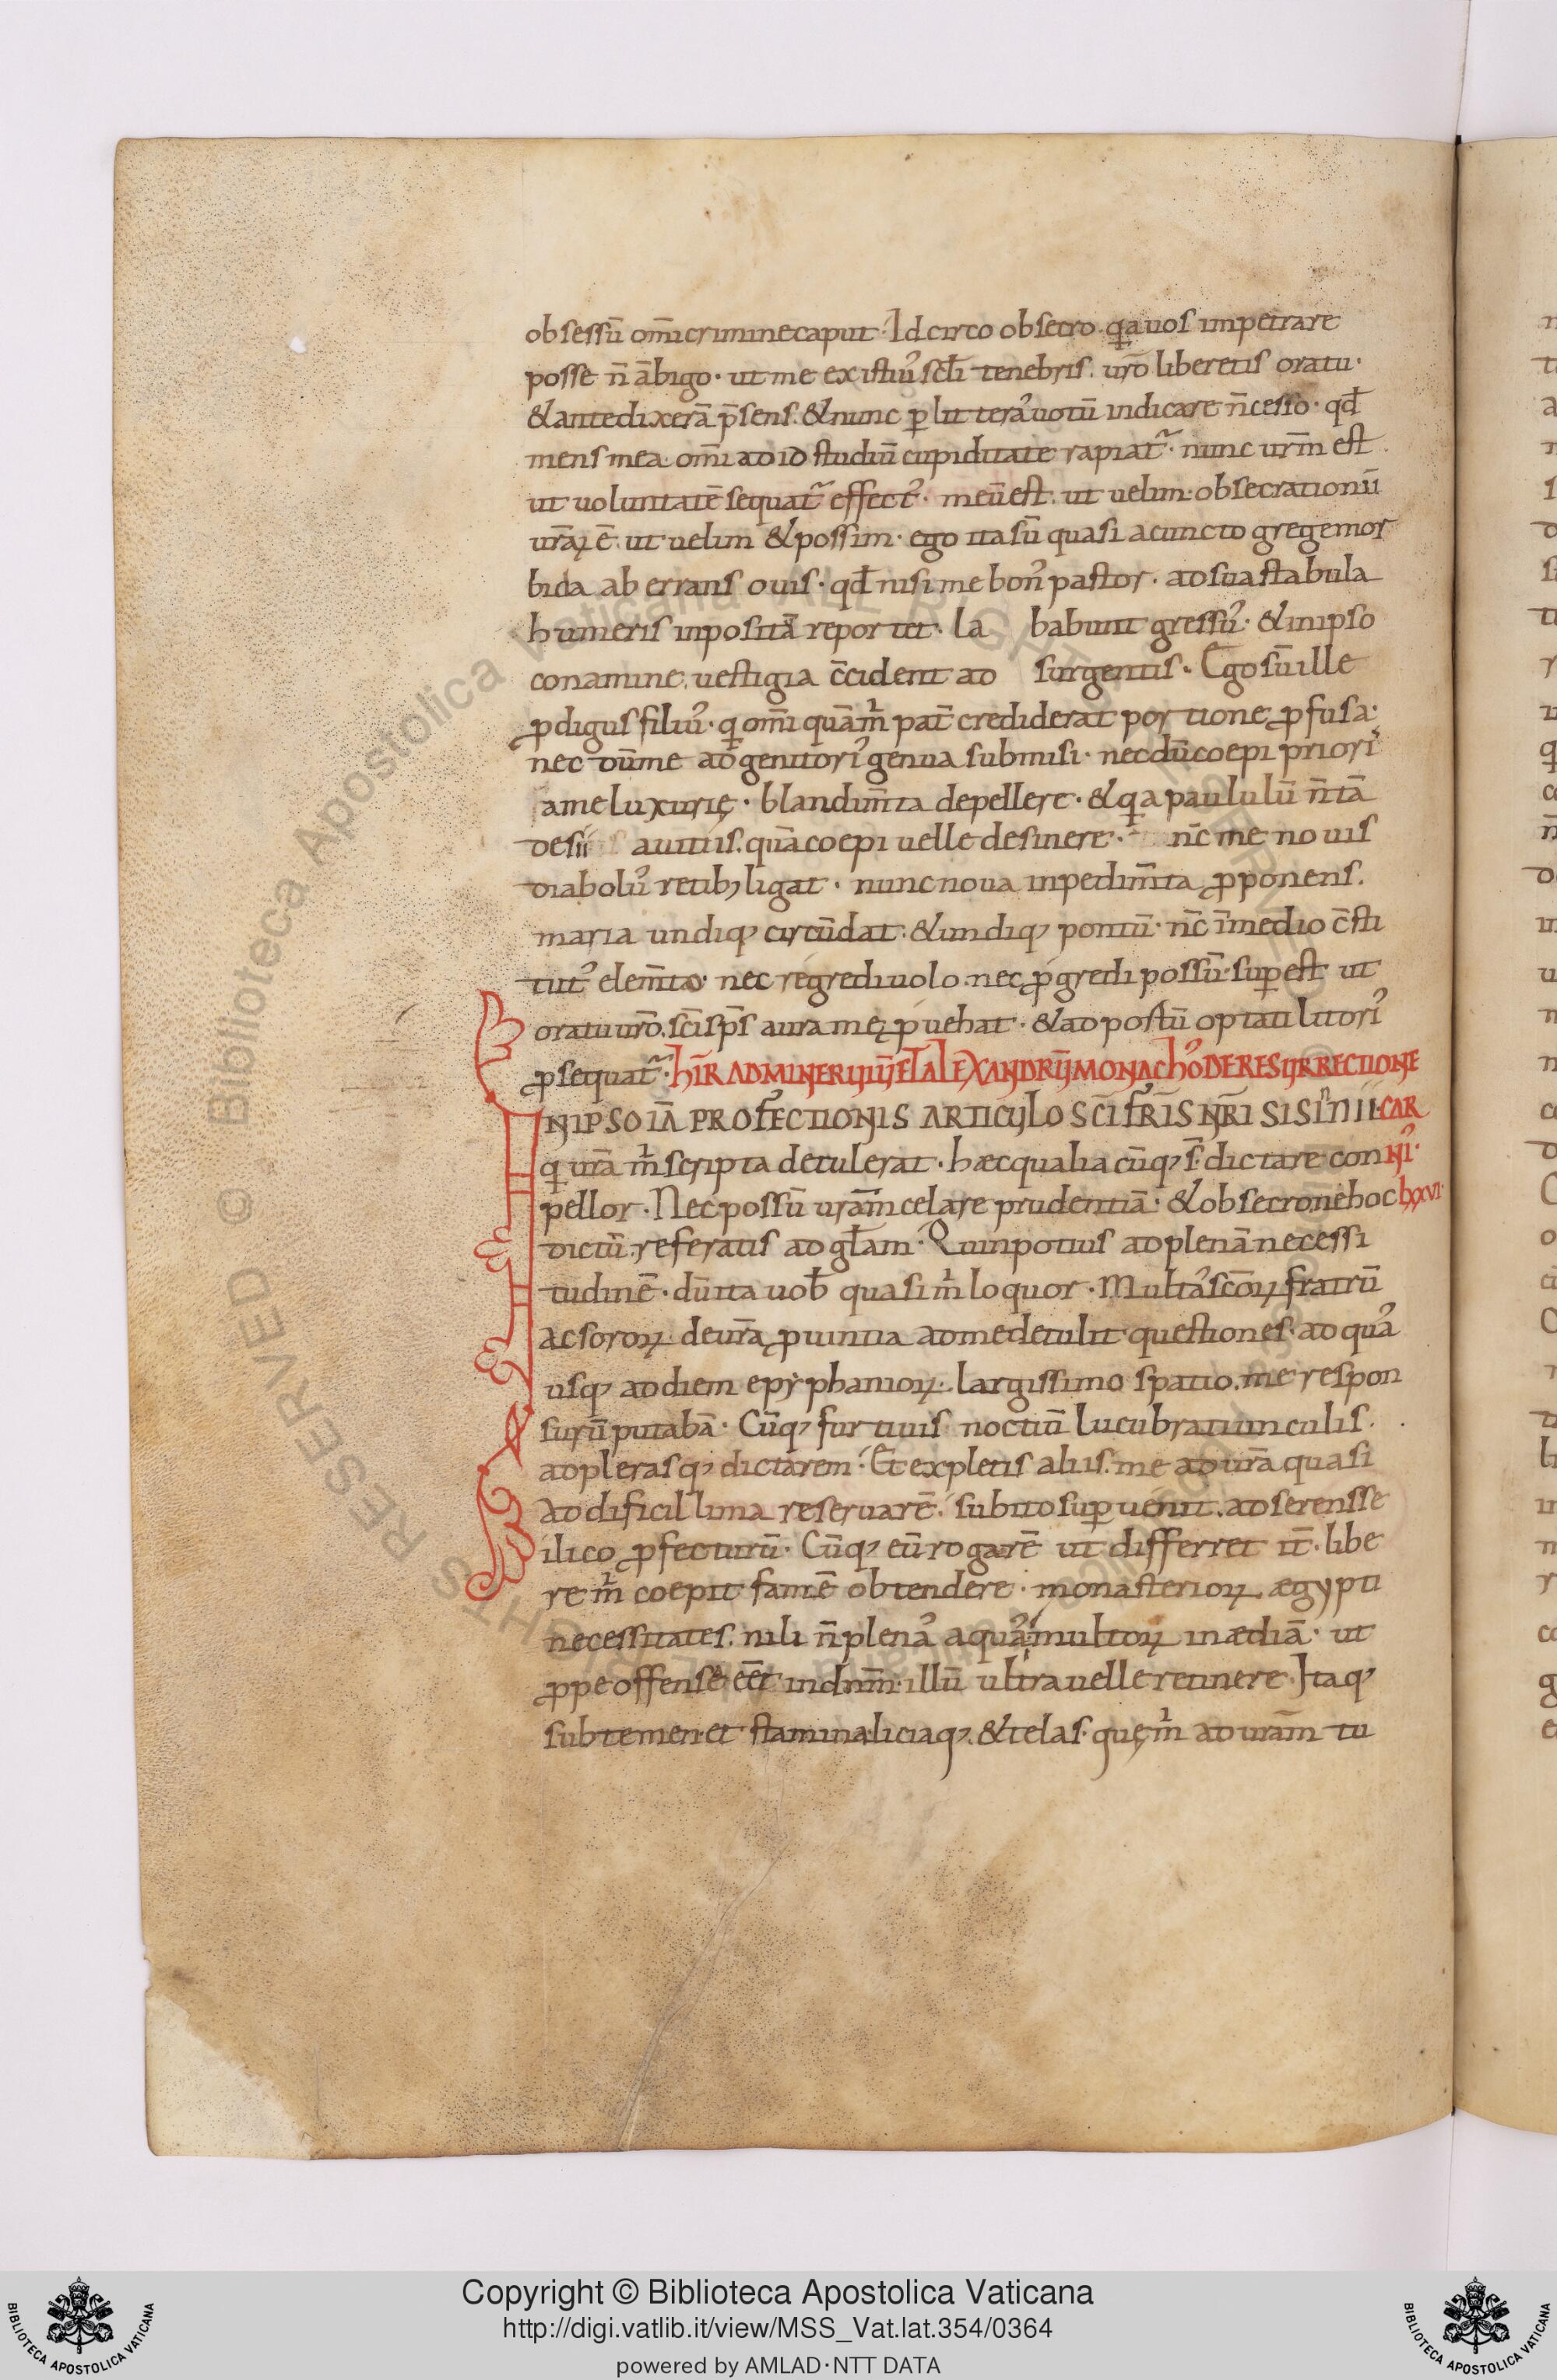 obsessū om̄icriminecaput· Idcirco obsecro. qꝛauos impetrare
posse n̄ ābigo· ut me ex istiuʼ scłi tenebris. ur̄o liberetis oratu·
&antedixerā p̄sens. &nunc ꝑ litteraʼ uotū indicare n̄cesso· qđ
mens mea om̄i ad id studiū cupiditate rapiat᷑· nunc ur̄m est.
ut uoluntatē sequat᷑ effectʼ· meūest. ut uelim· obsecrationū
ur̄aꝝ ē. ut uelim &possim· ego ita sū quasi acuncto gregemor
bida ab errans ouis· qđ nisi me bonʼ pastor. ad sua stabula
humeris inpositā reportet· la babunt gressuʼ· &inipso
conamine. uestigia c̄cident ad surgentis· Ego sū ille
ꝓdigus filiuʼ· q om̄i quā m pat̄ crediderat portione ꝓfusa·
nec dūme ad genitoriʼ genua submisi· necdūcoepi prioriʼ
ame luxurię· blandim̄ta depellere· &qꝛa paululū n̄tā
desii auitiis. quācoepi uelle desinere· n̄c me nouis
diabolʼ retibꝫ ligat· nunc noua inpedim̄ta ꝓponens.
maria undiqꝫ circūdat· &undiqꝫ pontū· n̄c īmedio c̄sti
tutʼ elem̄to· nec regrediuolo. nec ꝓgredi possū· suꝑest ut
oratuur̄o. sc̄i sp̄s aura meꝫ ꝓuehat· &ad postū optati litoriʼ
ꝓsequat᷑· HIR̄ AD MINERUIŪ ET ALEXANDRŪ MONACHOʼ DE RESURRECTIONE
INIPSO IĀ PROFECTIONIS ARTICULO SC̄I FR̄IS NR̄I SISINNII· CAR
q ur̄a m scripta detulerat· hæcqualia cūqꝫ s̄· dictare con NIʼ·
pellor. Nec possū ur̄am celare prudentiā· &obsecronehoc lxxvi·
dictū. referatis ad głam· Quinpotius ad plenā necessi
tudinē· dū ita uob̄ quasi m loquor· Multaʼ sc̄oꝝ fratrū
ac soroꝝ deur̄a ꝓuintia admedetulit questiones· ad quaʼ
usqꝫ ad diem epyphanioꝝ· largissimo spatio. me respon
surū putabā· Cūqꝫ furtiuis noctiū lucubratiunculis.
ad plerasqꝫ dictarem· Et expletis aliis. me ad ur̄a quasi
ad dificillima reseruarē. subito suꝑuenit. adserensse
ilico ꝓfecturū· Cūqꝫ eū rogarē ut differret it̄· libe
re m coepit famē obtendere· monasterioꝝ ægypti
necessitates. nili n̄ plenaʼ aquaʼ· multoꝝ inædiā· ut
ꝓpe offensa ēet in dn̄m· illū ultra uelle retinere· Itaqꝫ
subtemen et stamina. liciaqꝫ. &telas· quę m ad ur̄am tu
Copyright © Biblioteca Apostolica Vaticana
http://digi.vatlib.it/view/MSS_Vat.lat.354/0364
powered by AMLAD·NTT DATA